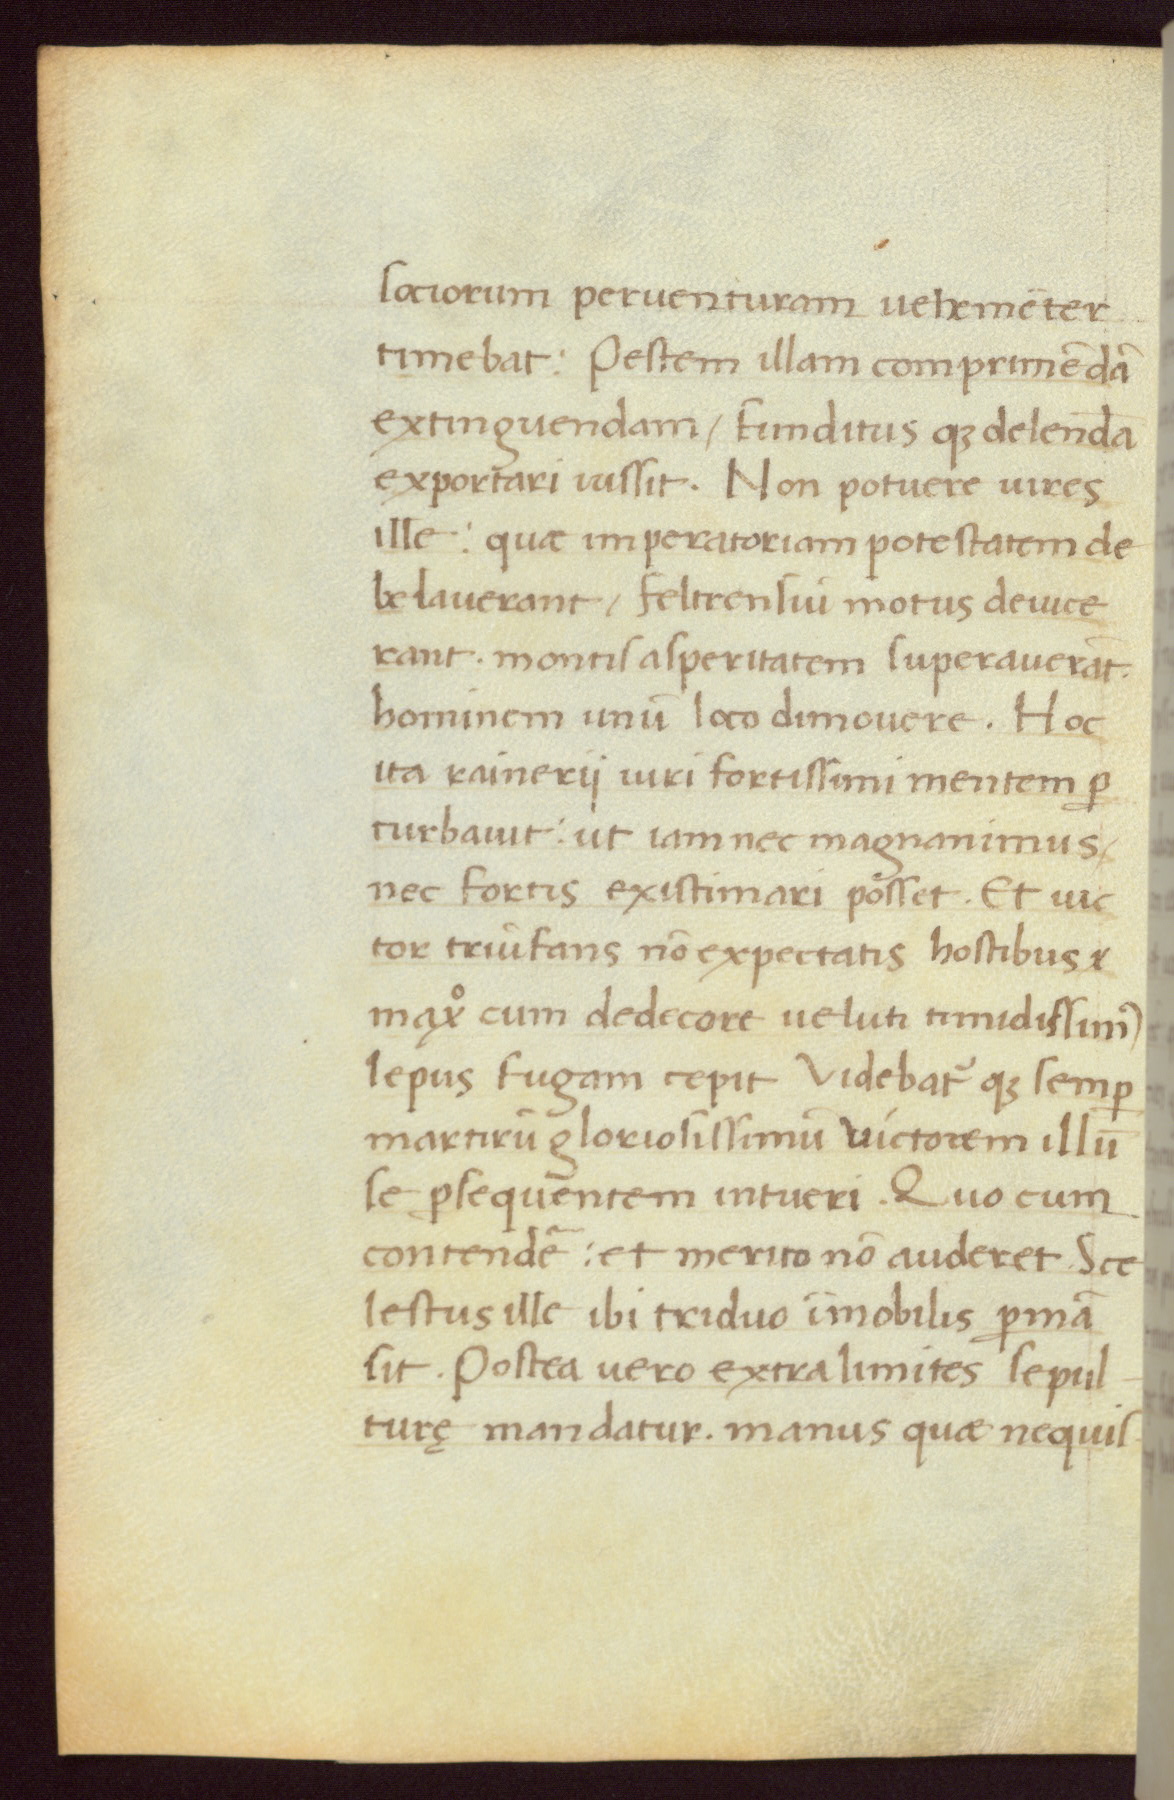 sociorum peruenturam uehemēter
timebat: Pestem illam comprimēdā
extinguendam / funditus qꝫ delendā
exportari iussit. Non potuere uires
ille: quæ imperatoriam potestatem de
belauerant / feltrensiū motus deuice
rant. montis asperitatem superauerāt.
hominem unū loco dimouere. Hoc
ita rainerij uiri fortissimi mentem ꝑ
turbauit: ut iam nec magnanimus /
nec fortis existimari posset. Et uic
tor triūfans nō expectatis hostibus &
maxͦ cum dedecore ueluti timidissimꝰ
lepus fugam cepit Videbat᷑ qꝫ semꝑ
martirū gloriosissimū uictorem illū
se ꝑsequentem intueri. Quo cum
contendē: et merito nō auderet. Sce
lestus ille ibi triduo īmobilis ꝑmā
sit. Postea uero extra limites sepul
turę mandatur. manus quæ nequis